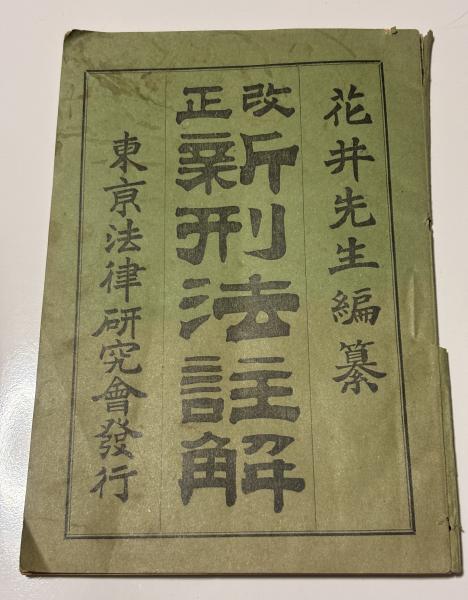 花井先生編纂
改正
新刑法註解
東京法律研究會發行